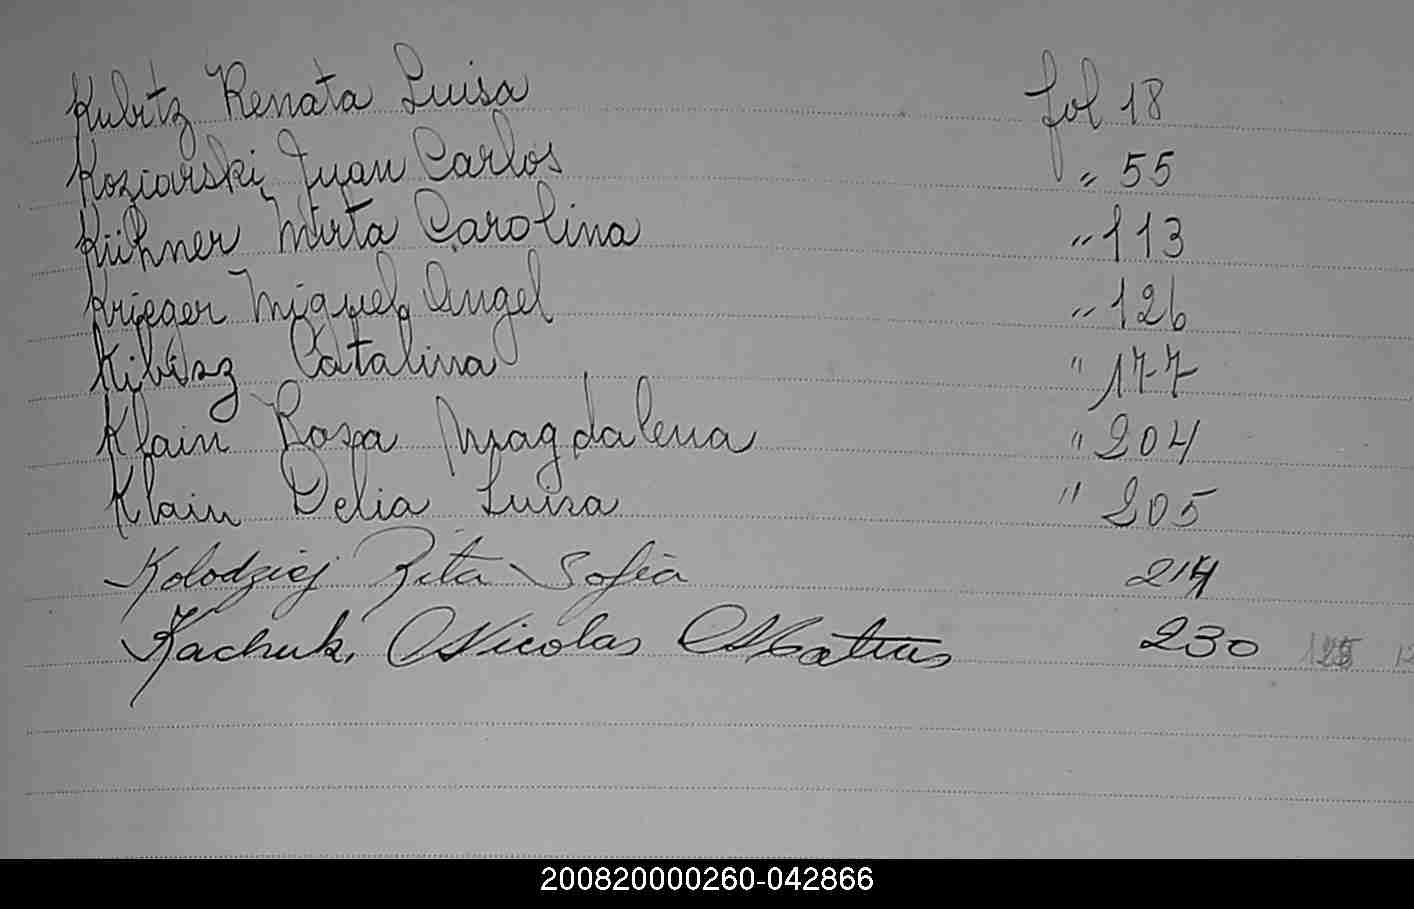 Kubitz Renata Luisa fol 18
Koziarski Juan Carlos " 55
Kühner Mirta Carolina " 113
Krieger Miguel Angel " 126
Kibisz Catalina " 177
Klain Rosa Magdalena " 204
Klain Delia Luisa " 205
Kolodziej Rita Sofia 214
Kachuk, Nicolas Matias 230
200820000260-042866